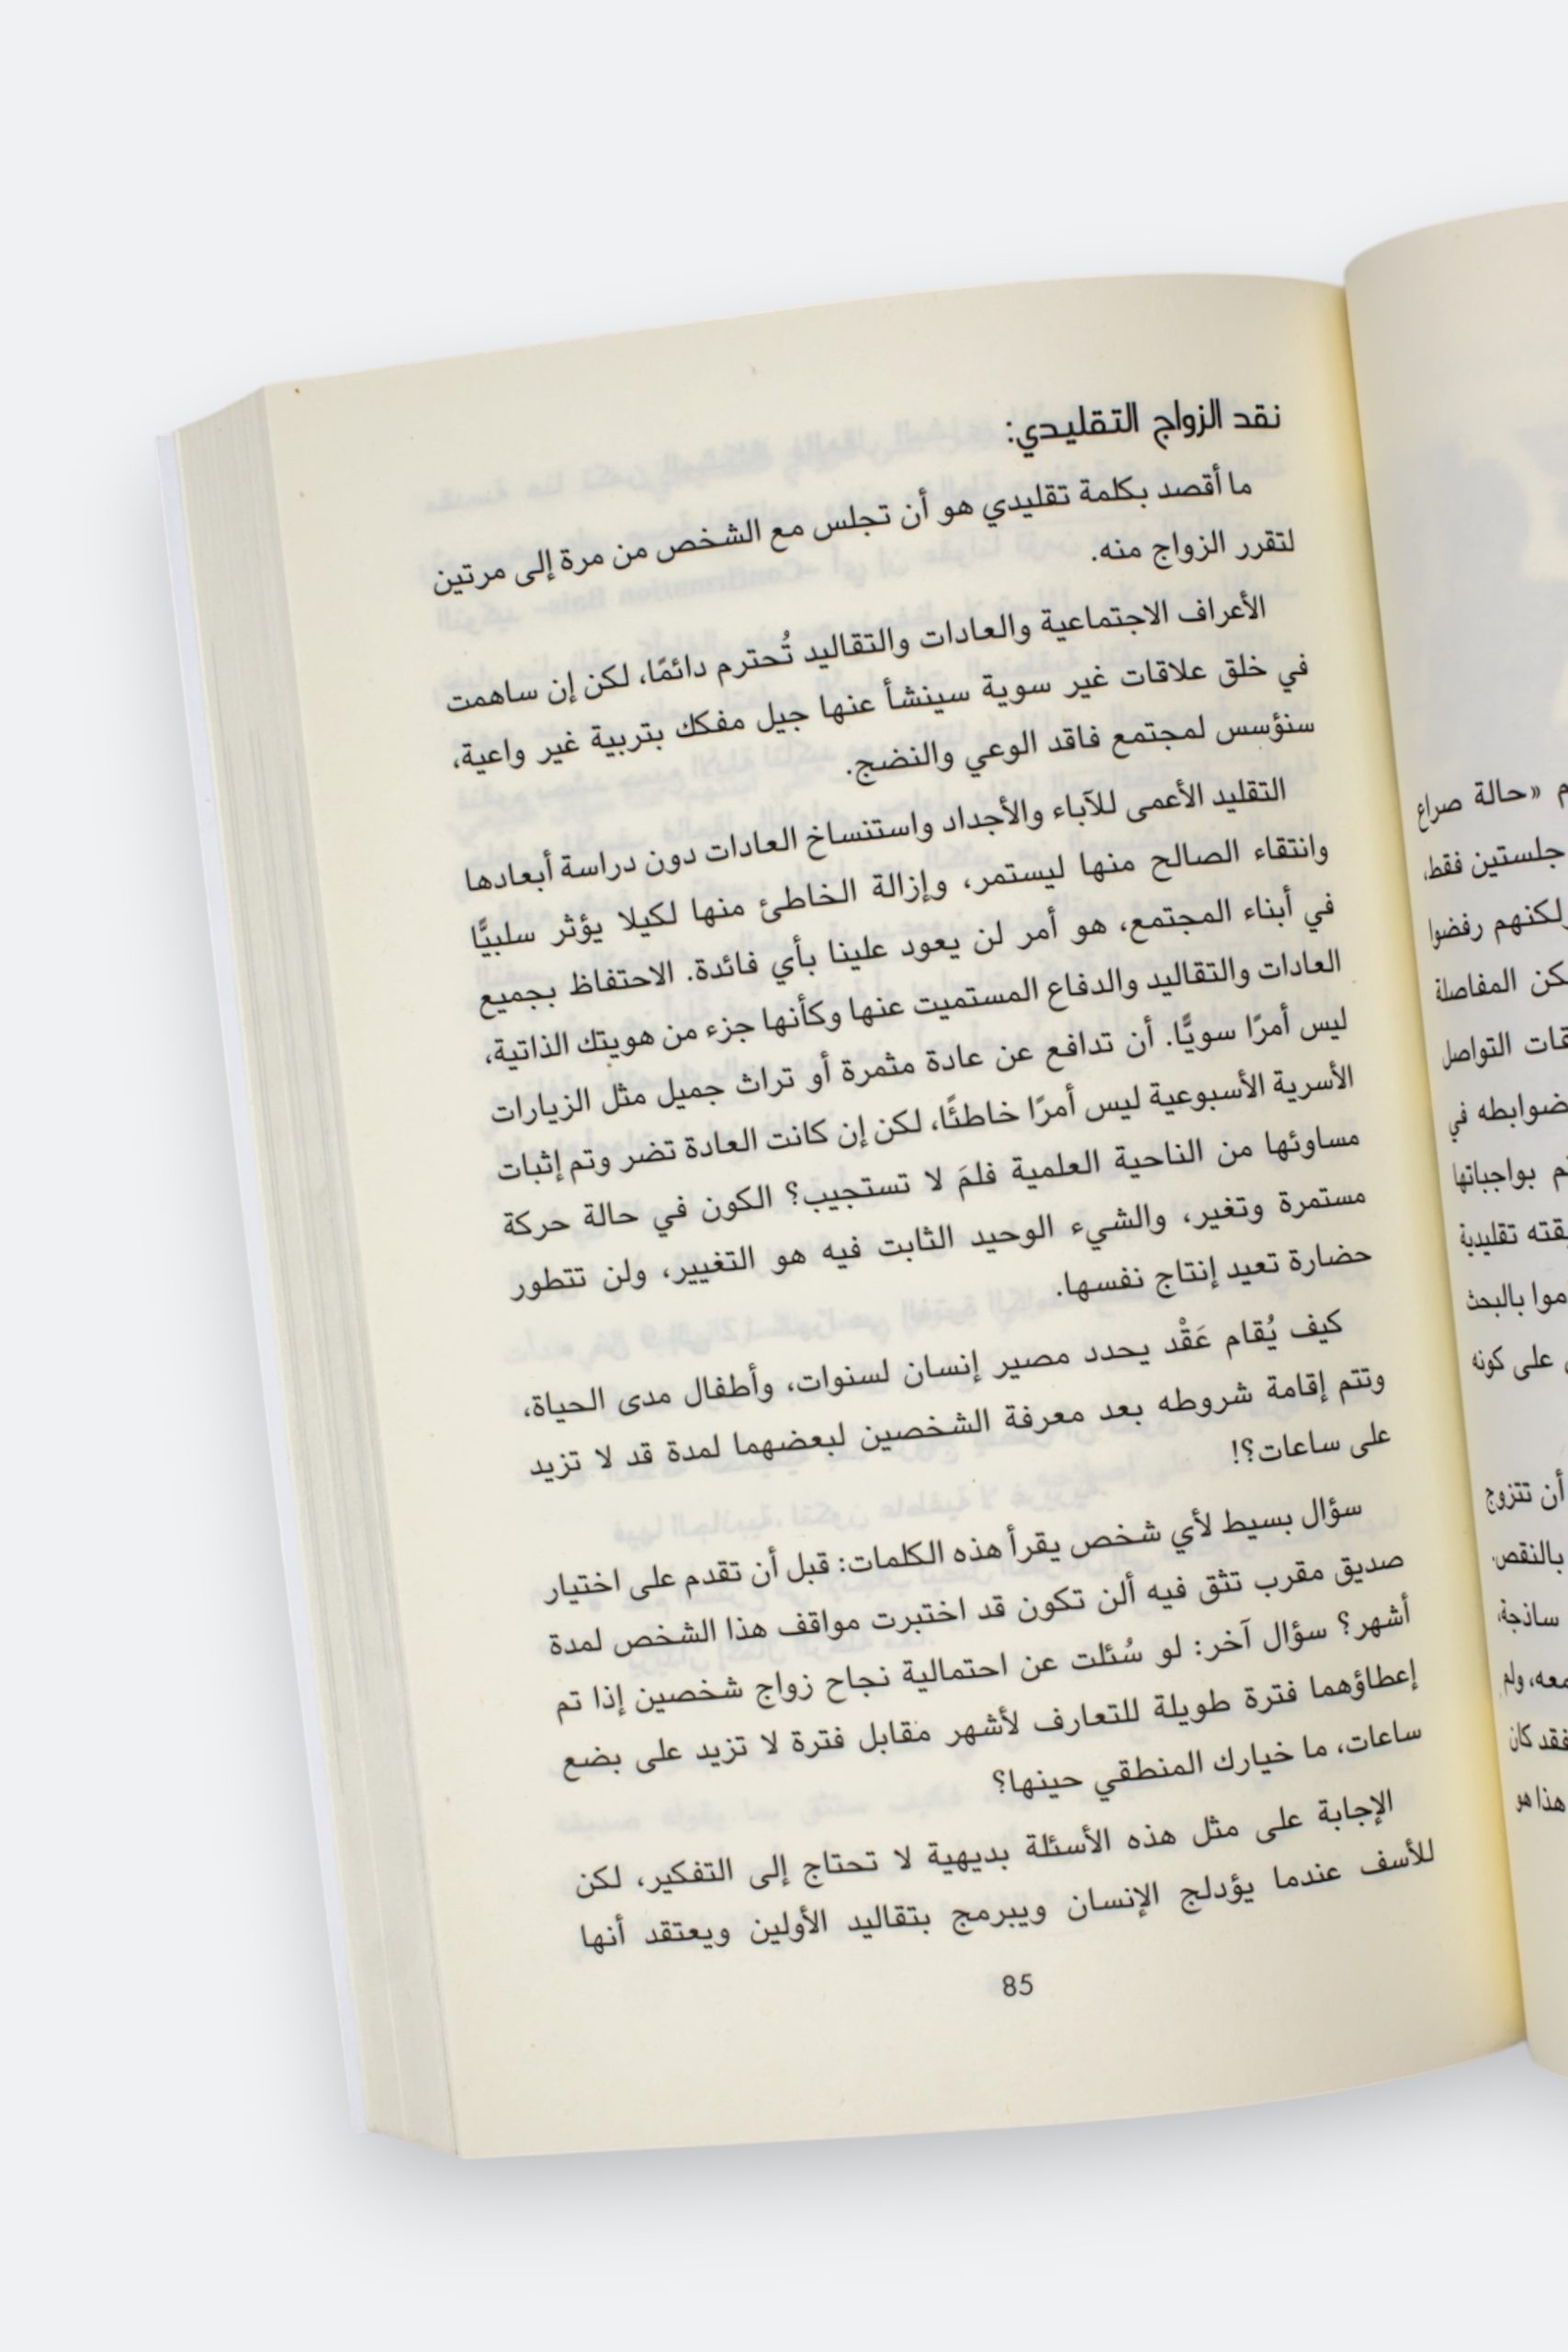 نقد الزواج التقليدي:
ما أقصد بكلمة تقليدي هو أن تجلس مع الشخص من مرة إلى مرتين
لتقرر الزواج منه.
الأعراف الاجتماعية والعادات والتقاليد تُحترم دائمًا، لكن إن ساهمت
في خلق علاقات غير سوية سينشأ عنها جيل مفكك بتربية غير واعية،
سنؤسس لمجتمع فاقد الوعي والنضج.
التقليد الأعمى للآباء والأجداد واستنساخ العادات دون دراسة أبعادها
وانتقاء الصالح منها ليستمر، وإزالة الخاطئ منها لكيلا يؤثر سلبيًّا
في أبناء المجتمع، هو أمر لن يعود علينا بأي فائدة. الاحتفاظ بجميع
العادات والتقاليد والدفاع المستميت عنها وكأنها جزء من هويتك الذاتية،
ليس أمرًا سويًّا. أن تدافع عن عادة مثمرة أو تراث جميل مثل الزيارات
الأسرية الأسبوعية ليس أمرًا خاطئًا، لكن إن كانت العادة تضر وتم إثبات
مساوئها من الناحية العلمية فلمَ لا تستجيب؟ الكون في حالة حركة
مستمرة وتغير، والشيء الوحيد الثابت فيه هو التغيير، ولن تتطور
حضارة تعيد إنتاج نفسها.
كيف يُقام عَقْد يحدد مصير إنسان لسنوات، وأطفال مدى الحياة،
وتتم إقامة شروطه بعد معرفة الشخصين لبعضهما لمدة قد لا تزيد
على ساعات؟!
سؤال بسيط لأي شخص يقرأ هذه الكلمات: قبل أن تقدم على اختيار
صديق مقرب تثق فيه ألن تكون قد اختبرت مواقف هذا الشخص لمدة
أشهر؟ سؤال آخر: لو سُئلت عن احتمالية نجاح زواج شخصين إذا تم
إعطاؤهما فترة طويلة للتعارف لأشهر مقابل فترة لا تزيد على بضع
ساعات، ما خيارك المنطقي حينها؟
الإجابة على مثل هذه الأسئلة بديهية لا تحتاج إلى التفكير، لكن
للأسف عندما يؤدلج الإنسان ويبرمج بتقاليد الأولين ويعتقد أنها
85
«حالة صراع
جلستين فقط،
لكنهم رفضوا
المفاصلة
التواصل
ضوابطه في
بواجباتها
تقليدية
بالبحث
على كونه
أن تتزوج
بالنقص
ساذجة،
ولم
فقد كان
هذا هو